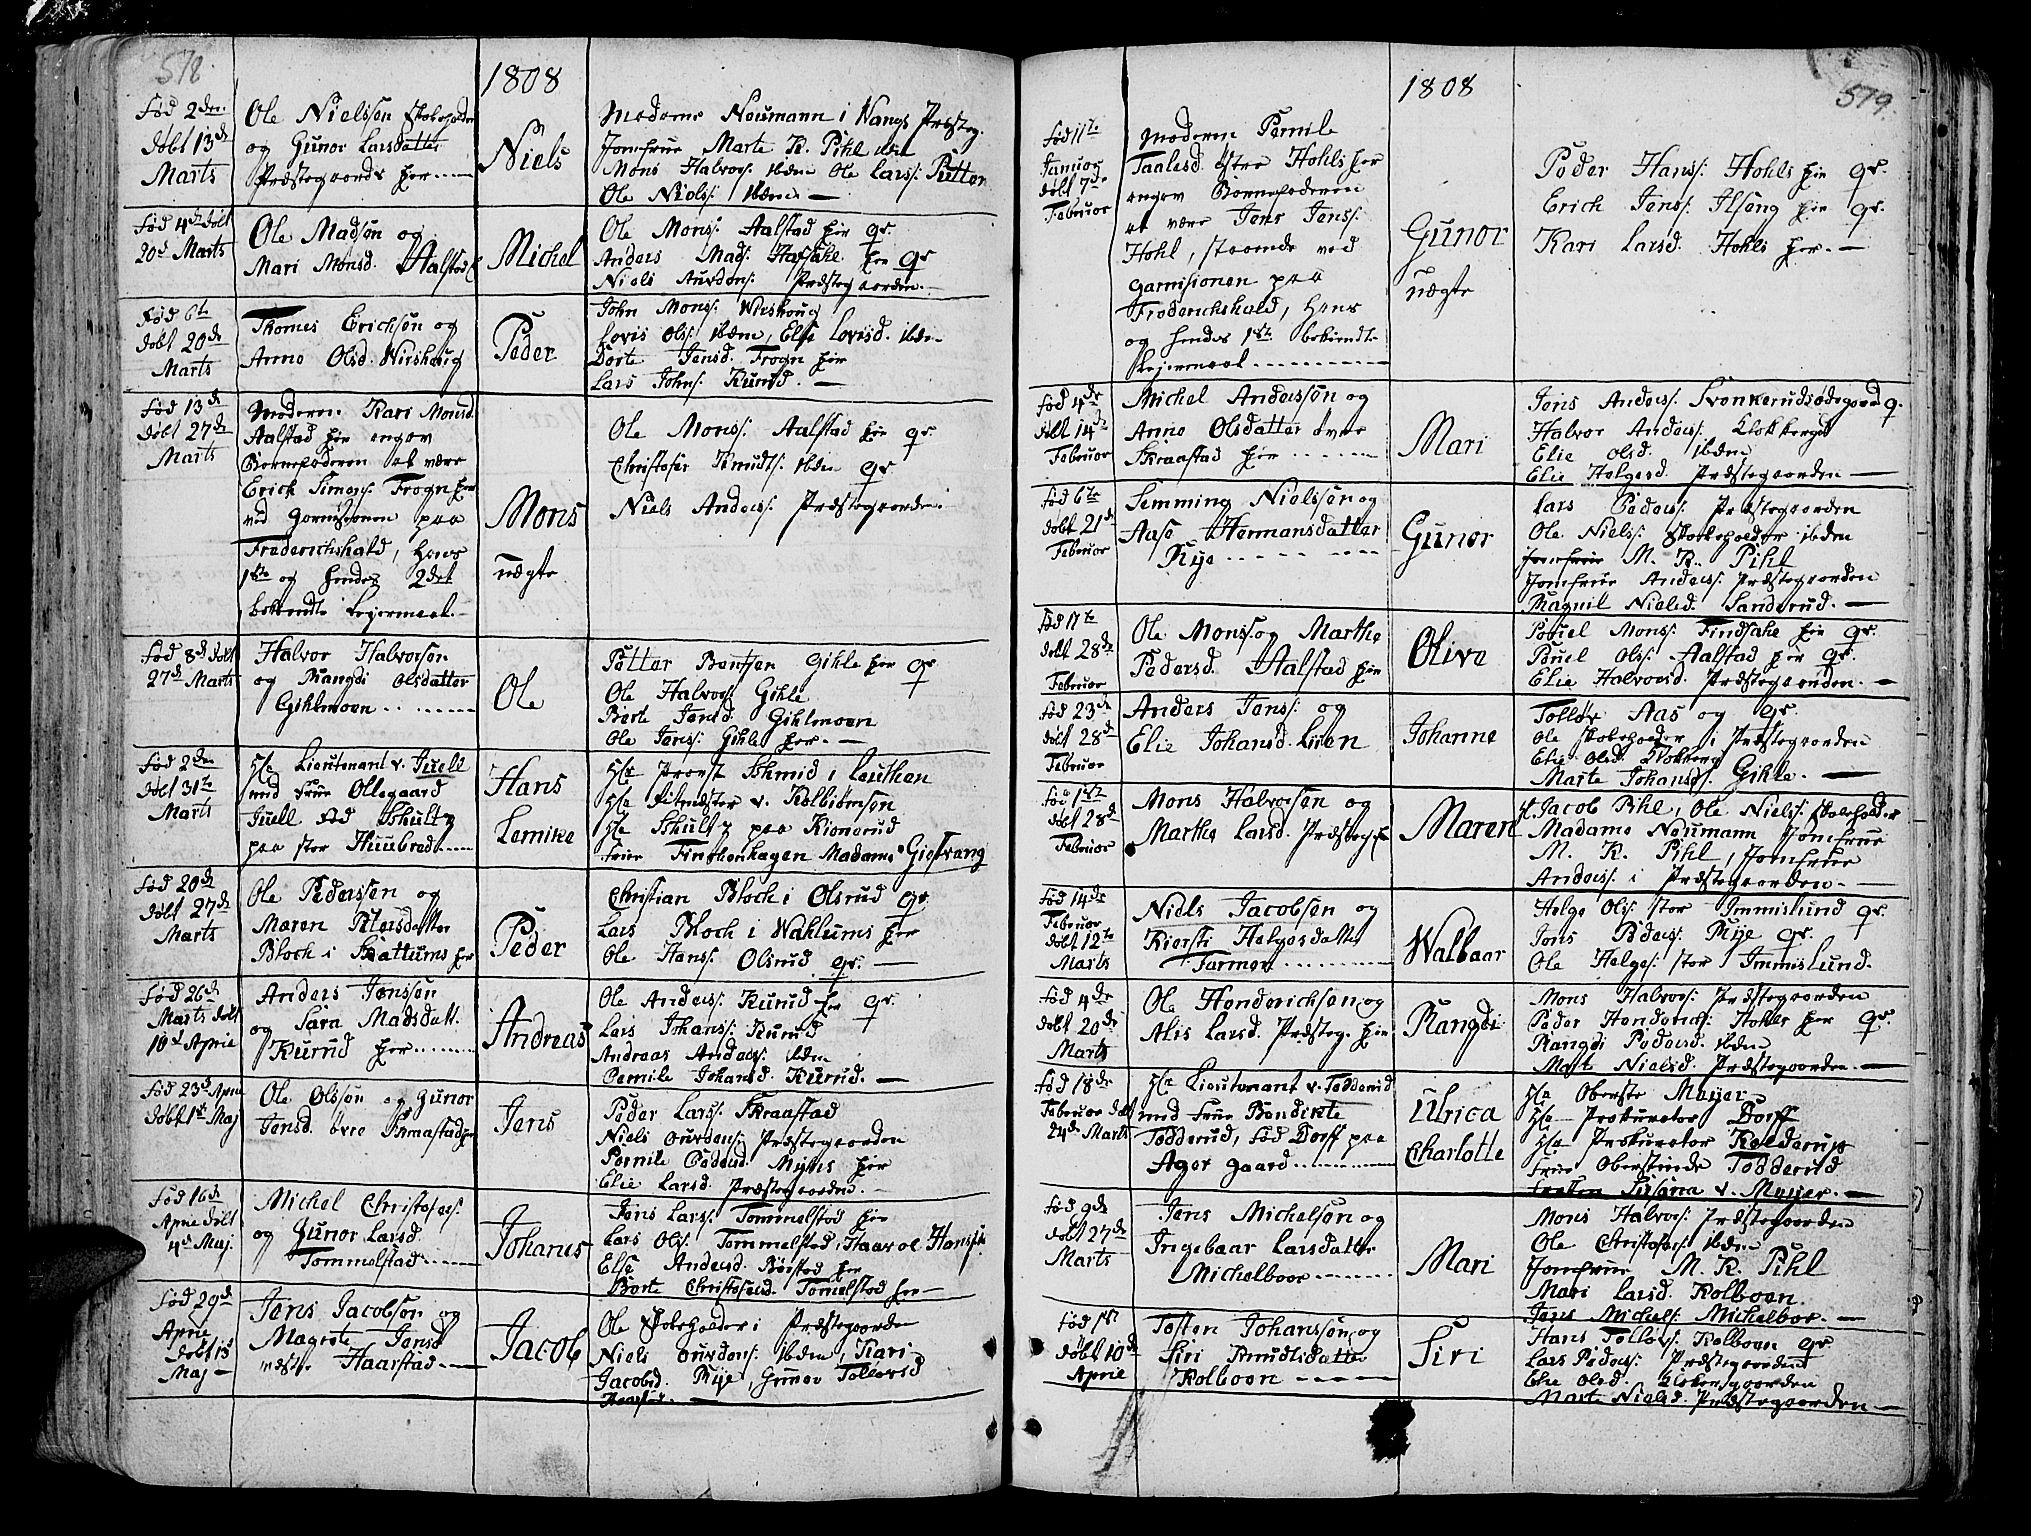 578.
1808
Fød 2den
døbt 13de
Marts
Ole Nielssøn Skoleholder
og Gunor Larsdatter
Præstegaards her
Niels
Madame Neumann i Vangs Præsteg.
Jomfrue Marte K. Pihl ibd
Mons Halvors: ibdm Ole Lars: Putten
Ole Niels: ibdm
Fød 4de Døbt
20de Marts
Ole Madsøn og
Mari Monsd. Aalstad
Michel
Ole Mons: Aalstad her gr.
Anders Mads:
Niels Auvdens: Præstegaarden
Fød 6te
døbt 20de
Marts
Thomes Erichsøn og
Anne Olsd. Wirshoug
Peder
John Mons: Wirshoug
Lovis Ols: ibdm, Else Lovisd. ibdm
Dorte Jensd. Frogn her
Lars Johns: Kurud.
Fød 13de
døbt 27de
Marts
Moderen Kari Monsd.
Aalstad her angav
Barnefaderen at være
Erich Simens: Frogn her
ved garnisonen paa
Frederichshald, Hans
1ste og hendes 2det
bekiendte Leiermaal.
Mons
uægte
Ole Mons: Aalstad her gr.
Christofer Knuds: ibdm gr
Niels Anders: Præstegaarden
Fød 8de døbt
27de Marts
Halvor Halvorsøn
og Rangdi Olsdatter
Gihlmoen
Ole
Petter Bentsen Gihle her gr
Ole Halvors: Gihle
Berte Jensd. Gihlmoen
Ole Jens: Gihle her.
Fød 2den
døbt 31te
Marts
Hr Lieutenant v. Juell
med Frue Ollegaard
Juell fød Schultz
paa stor Huubred
Hans
Lemike
Hr Provst Schmid i Leuthen
Hr Ritmester v. Kolbiørnsen
Hr Schultz paa Kionerud
Frue Finchenhagen Madame Giefvang
Fød 20de
døbt 27de
Marts
Ole Pedersøn og
Maren Petersdatter
Bloch i Skattums her
Peder
Christian Bloch i Olsrud gr.
Lars Bloch i Wahlums her
Ole Hans: Olsrud gr.
Fød 26de
Marts døbt
10de Aprie
Anders Jenssøn
og Sara Madsdatt.
Kurud her
Andreas
Ole Anders: Kurud her gr.
Lars Johans: Kurud
Andreas Anders: ibdm
Pernile Johansd. Kurud.
Fød 23de Aprie
døbt 1ste Maj
Ole Olssøn og Gunor
Jensd. øvre Skraastad her
Jens
Peder Lars: Skraastad
Niels Auvdens: Præstegaarden
Pernile Pedersd. Myhrs her
Elie Larsd. Præstegaarden.
Fød 16de
Aprie døbt
4de Maj
Michel Christofers:
og Gunor Larsd.
Tommelstad
Johanes
Jens Lars: Tommelstad her
Lars Ols: Tommelstad, Haavel Hans:
Else Andersd. Børstad her
Berte Christofersd. Tomelstad her
Fød 29de
Aprie
døbt 15
Maj
Jens Jacobsøn og
Magrete Jensd
Haarstad
Jacob
Ole Skoleholder i Præstegaarden
Niels Auvdens: ibdm, Kari
Jacobsd. Rye, Gunor Tollevsd
Haarstad.
1808
579.
Fød 11te
Januar
døbt 7de
Februar
Moderen Pernile
Taalesd. øtre Hohls her
angav Barnefaderen
at være Jens Jens:
Hohl, staaende ved
garnisionen paa
Frederichshald, Hans
og hendes 1ste bekiendte
Leiermaal
Gunor
uægte
Peder Hans: Hohls her gr.
Erich Jens: Ilseng her gr.
Kari Larsd. Hohls her.
Fød 4de
døbt 14de
Februar
Michel Anderssøn og
Anne Olsdatter øvre
Skraastad her
Mari
Jens Anders: Svenkerudsødegaard g.
Halvor Anders: Klokkergd
Elie Olsd. ibdm
Elie Helgesd. Præstegaarden
Fød 6te
døbt 21de
Februar
Semming Nielssøn og
Aase Hermansdatter
Rye
Gunor
Lars Peders: Præstegaarden
Ole Niels: Skoleholder ibdm
Jomfrue M. K. Pihl
Jomfrue Anders: Præstegaarden
Magnil Nielsd. Sanderud.
Fød 17te
døbt 28de
Februar
Ole Mons: og Marthe
Pedersd. Aalstad her
Olive
Pouel Mons: Findsahe her gr.
Pouel Ols: Aalstad her gr.
Elie Halvorsd. Præstegaarden.
Fød 23de
døbt 28de
Februar
Anders Jens: og
Elie Johansd. Lien
Johanne
Tolløv Aas og gr.
Ole Skoleholder i Præstegaarden
Elie Olsd. Klokkerg
Marte Johansd. Gihle.
Fød 1ste
døbt 28de
Februar
Mons Halvorsen og
Marthe Larsd. Præsteg
Maren
H. Jacob Pihl, Ole Niels: Skoleholder
Madame Neumann Jomfrue
M. K. Pihl, Jomfrue
Anders: i Præstegaarden.
Fød 14de
Februar
døbt 12te
Marts
Niels Jacobsen og
Kiersti Helgesdatter
Farmen
Walbaar
Helge Ols: stor Immislund gr.
Jens Peders: Rye gr.
Ole Helges: stor Immislund.
Fød 4de
døbt 20de
Marts
Ole Henderichsøn, og
Alis Larsd. Præsteg. her
Rangdi
Mons Halvors: Præstegaarden
Peder Henderichs: Hohls her gr.
Rangdi Pedersd. ibdm
Mart Nielsd. Præstegaarden
Fød 18de
Februar døbt
24de Marts
Hr Lieutenant v. Todderud
med Frue Bendikte
Todderud, fød Dorff paa
Ager gaard
Ulrica
Charlotte
Hr Oberste Meyer
Hr Prokurator Dorff
Hr Prokurator Kolderup
Frue Oberstinde Todderud
Frøken Susana v. Meyer.
Fød 9de
døbt 27de
Marts
Jens Michelsøn og
Ingebaar Larsdatter
Michelboe
Mari
Mons Halvors: Præstegaarden
Ole Christofers: ibdm
Jomfrue M. K. Pihl
Mari Larsd. Kolboen
Jens Michels: Michelboe.
Fød
døbt 10de
Aprie
Tosten Johanssøn, og
Siri Knudsdatter
Kolboen
Siri
Hans Tolløvs: Kolboen gr.
Lars Peders: Præstegaarden
Elie Olsd. Klokergaarden
Marte Nielsd. Præstegaarden